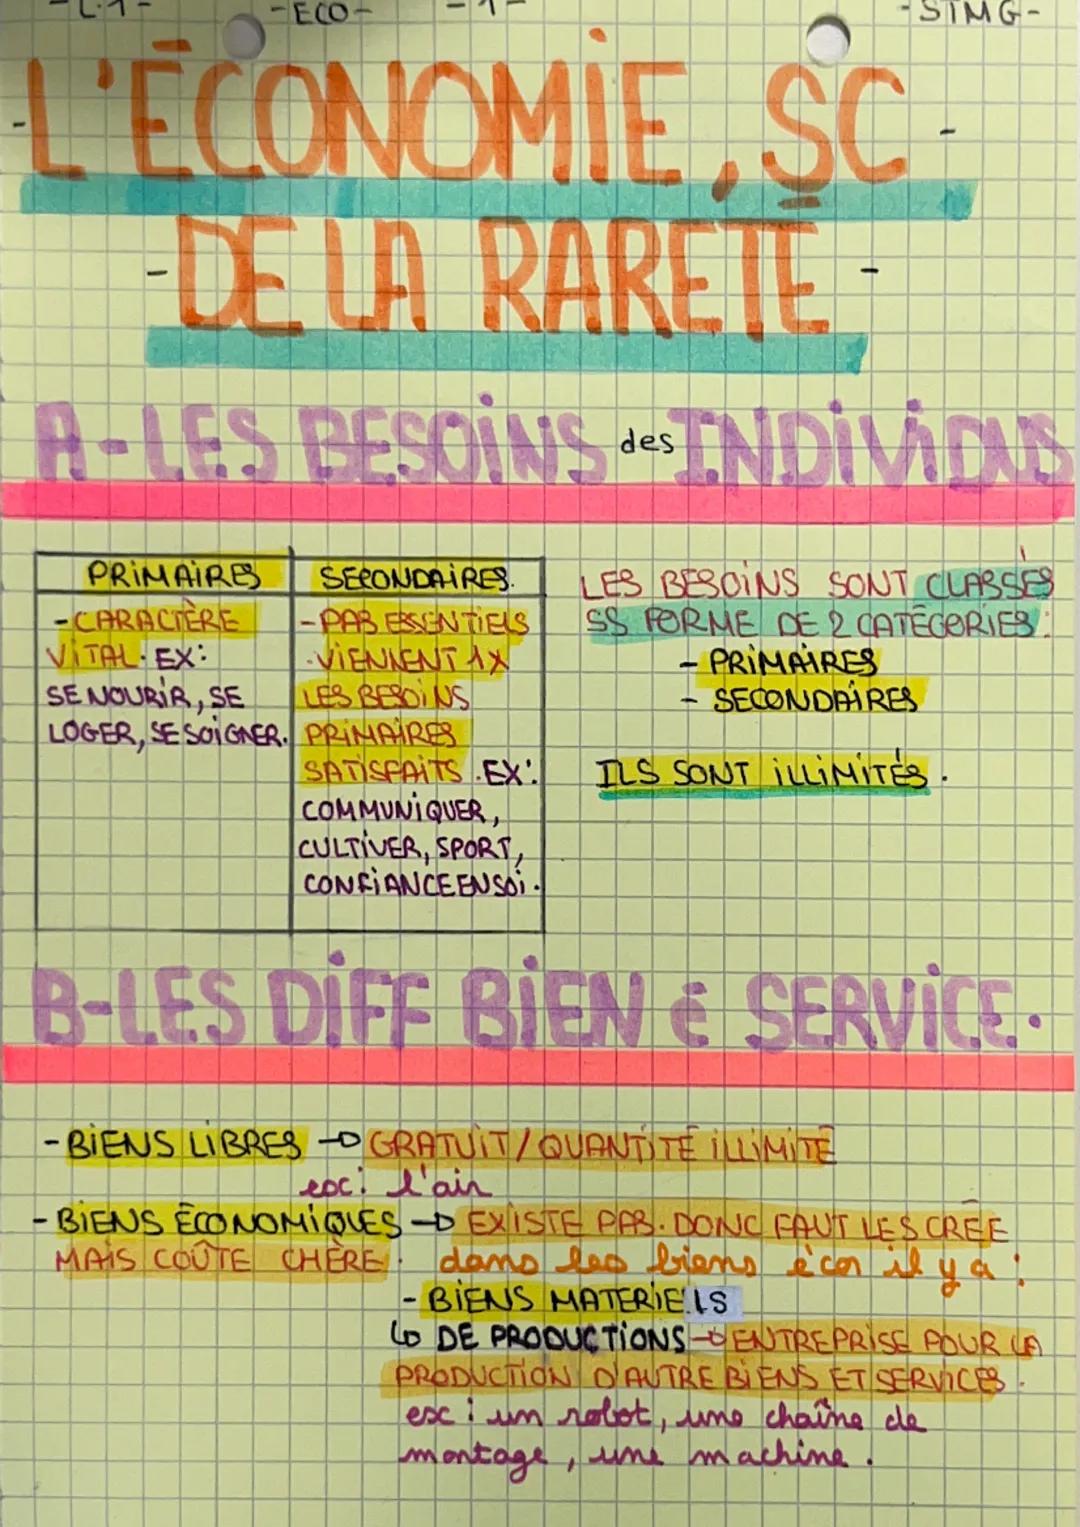 -ECO-
-1-
-STMG-
-L'ÉCONOMIE, SC-
-DE LA RARETÉ-
A-LES BESOINS des INDIVIDUS
PRIMAIRES
-CARACTÈRE
VITAL. EX:
SE NOURIR, SE
LOGER, SE SOIGNER.
SECONDAIRES.
-PAS ESSENTIELS
-VIENNENT 1X
LES BESOINS
PRIMAIRES
SATISFAITS. EX:
COMMUNIQUER,
CULTIVER, SPORT,
CONFIANCE EN SOI.
LES BESOINS SONT CLASSÉS
SS FORME DE 2 CATÉGORIES:
- PRIMAIRES
- SECONDAIRES
ILS SONT ILLIMITÉS.
B-LES DIFF BIEN & SERVICE.
-BIENS LIBRES → GRATUIT/QUANTITÉ ILLIMITÉ
ex: l'air
-BIENS ÉCONOMIQUES → EXISTE PAS. DONC FAUT LES CRÉE
MAIS COÛTE CHÈRE. dans les biens éco il y a:
- BIENS MATERIELS
↳ DE PRODUCTIONS → ENTREPRISE POUR LA
PRODUCTION D'AUTRE BIENS ET SERVICES.
ex: un robot, une chaîne de
montage, une machine.